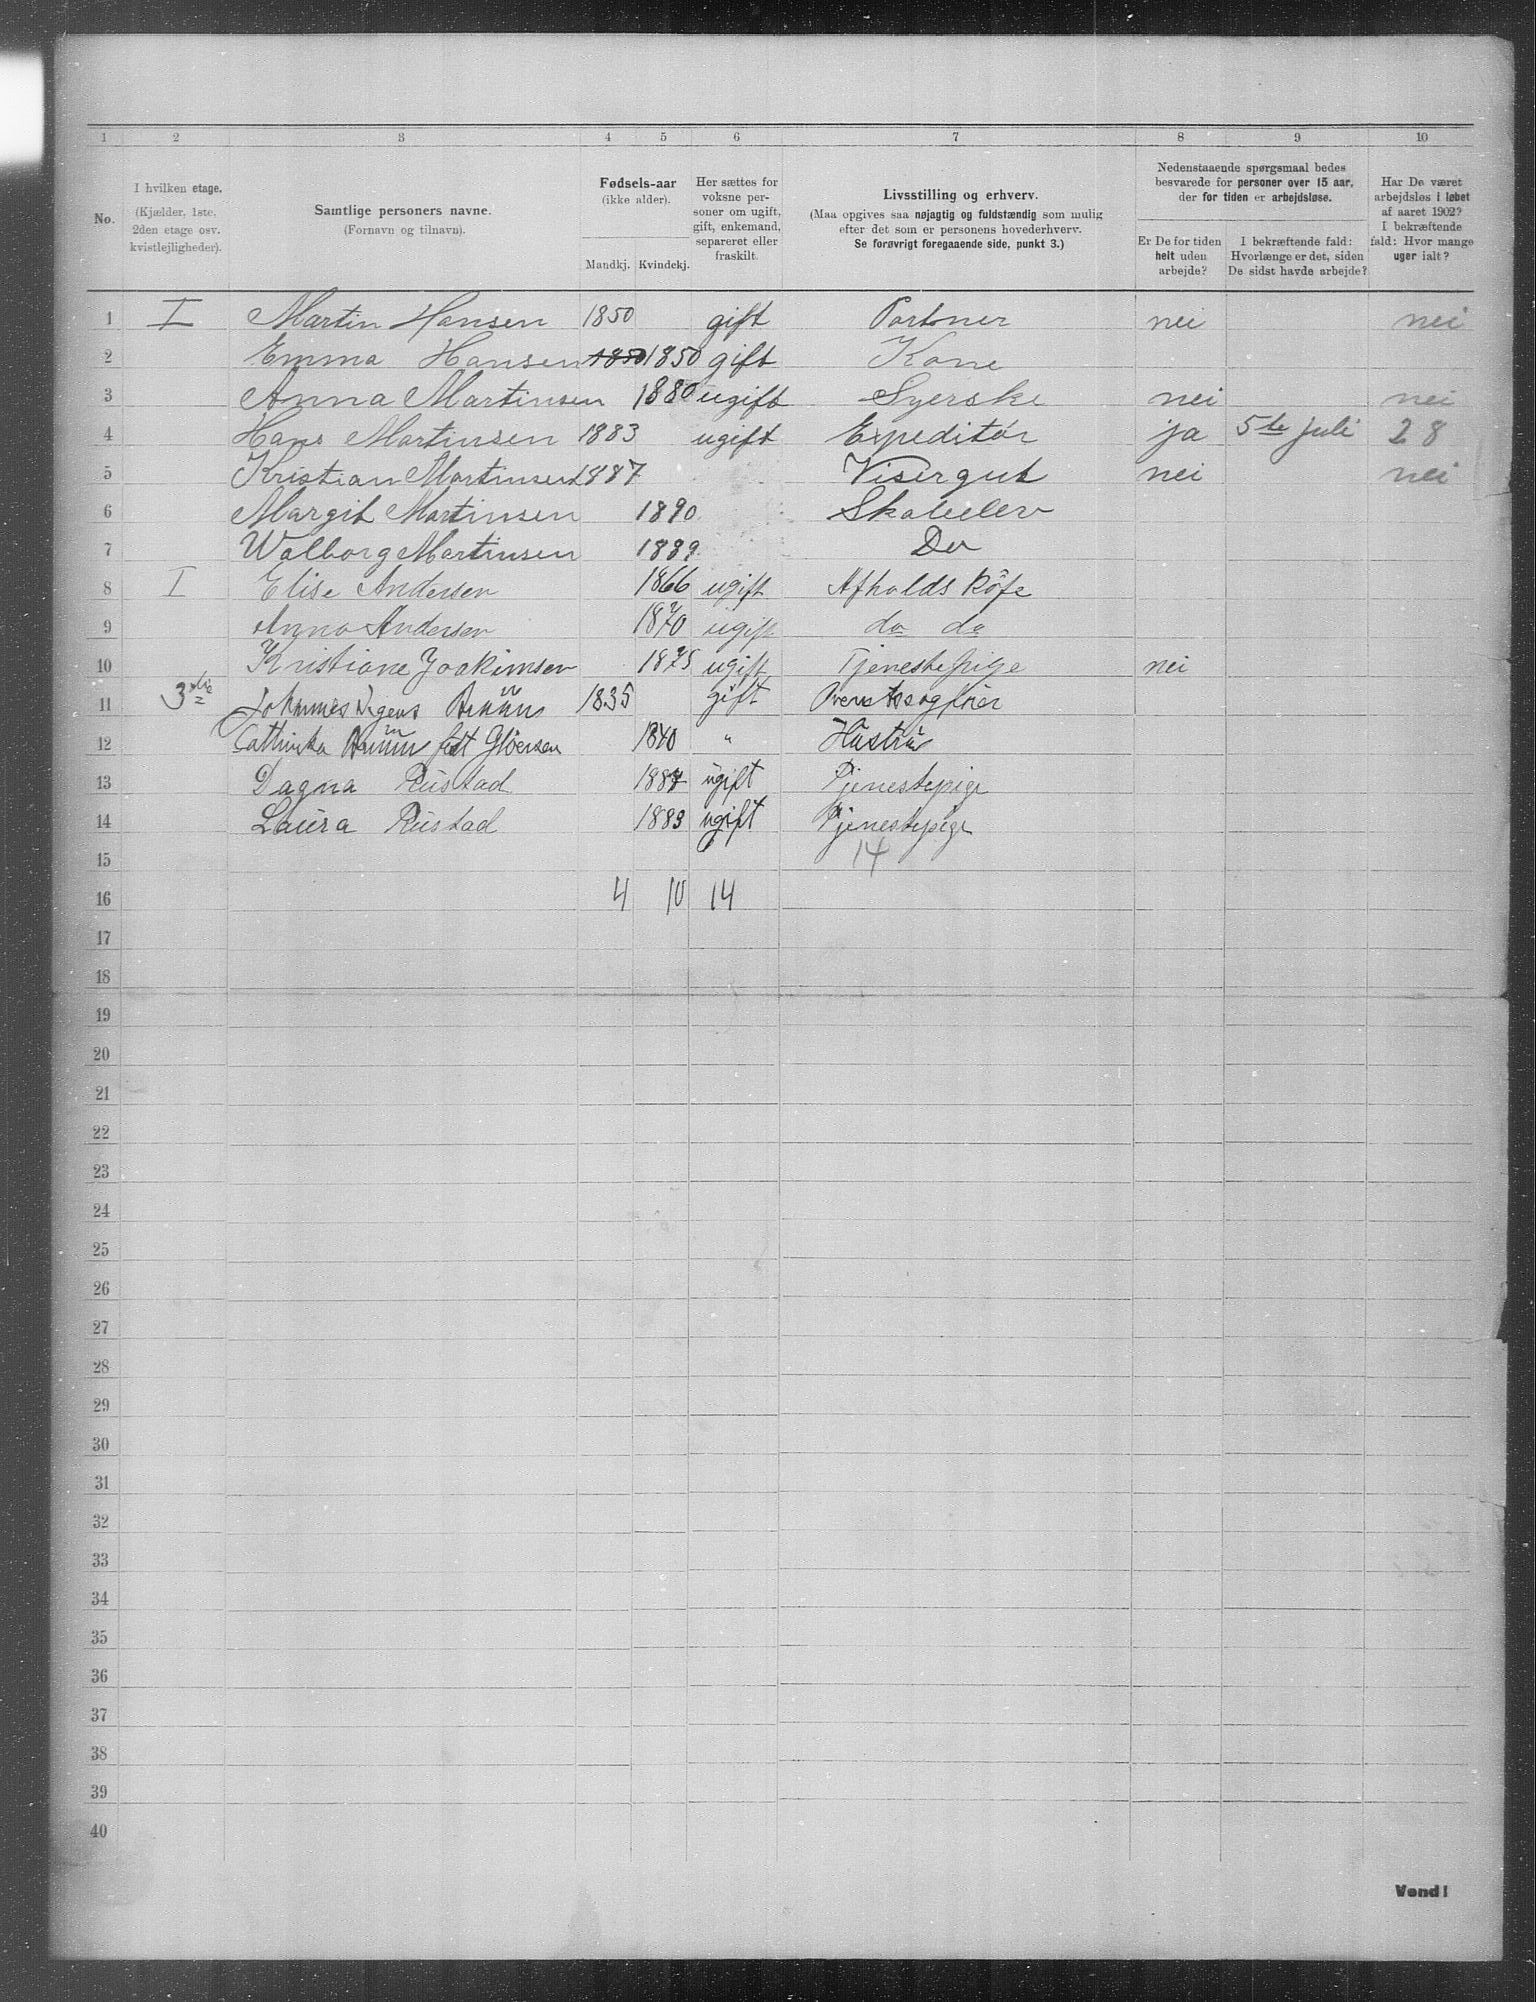 1 2 3 4 5 6 7 8 9 10
No.
I hvilken etage.
(Kjælder, 1ste,
2den etage osv.
kvistlejligheder).
Samtlige personers navne.
(Fornavn og tilnavn).
Fødsels-aar
(ikke alder).
Mandkj. Kvindekj.
Her sættes for
voksne per-
soner om ugift,
gift, enkemand,
separeret eller
fraskilt.
Livsstilling og erhverv.
(Maa opgives saa nøjagtig og fuldstændig som mulig
efter det som er personens hovederhverv.
Se forøvrigt foregaaende side, punkt 3.)
Nedenstaaende spørgsmaal bedes
besvarede for personer over 15 aar,
der for tiden er arbejdsløse.
Er De for tiden
helt uden
arbejde?
I bekræftende fald:
Hvorlænge er det, siden
De sidst havde arbejde?
Har De været
arbejdsløs i løbet
af aaret 1902?
I bekræftende
fald: Hvor mange
uger ialt?
1 I Martin Hansen 1850 gift Portner nei nei
2 Emma Hansen 1850 1850 gift Kone
3 Anna Martinsen 1880 ugift Syerske nei nei
4 Hans Martinsen 1883 ugift Expeditør ja 5te juli 28
5 Kristian Martinsen 1887 Visergut nei nei
6 Margit Martinsen 1890 Skoleelev
7 Walborg Martinsen 1889 Do
8 I Elise Andersen 1866 ugift Afholds Kafe
9 Anna Andersen 1870 ugift do do
10 Kristiane Joakimsen 1875 ugift Tjenestepige nei
11 3die Johannes Bruun 1835 gift Overretssagfører
12 Cathinka Bruun født Gløersen 1840 " Hustru
13 Dagna Rustad 1887 ugift Tjenestepige
14 Laura Rustad 1883 ugift Tjenestepige
15 14
16 4 10 14
17
18
19
20
21
22
23
24
25
26
27
28
29
30
31
32
33
34
35
36
37
38
39
40
Vend!